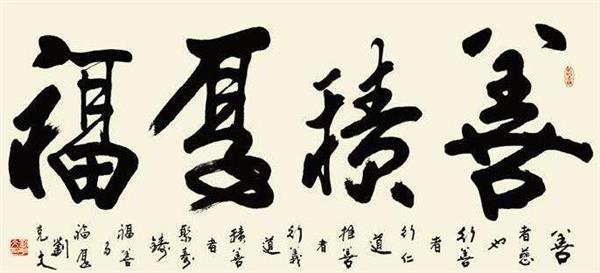 善積厚福
善
者慈
也
行善
者
行仁
道
推善
者
行義
道
積善
者
福善
福厚
劉
克文